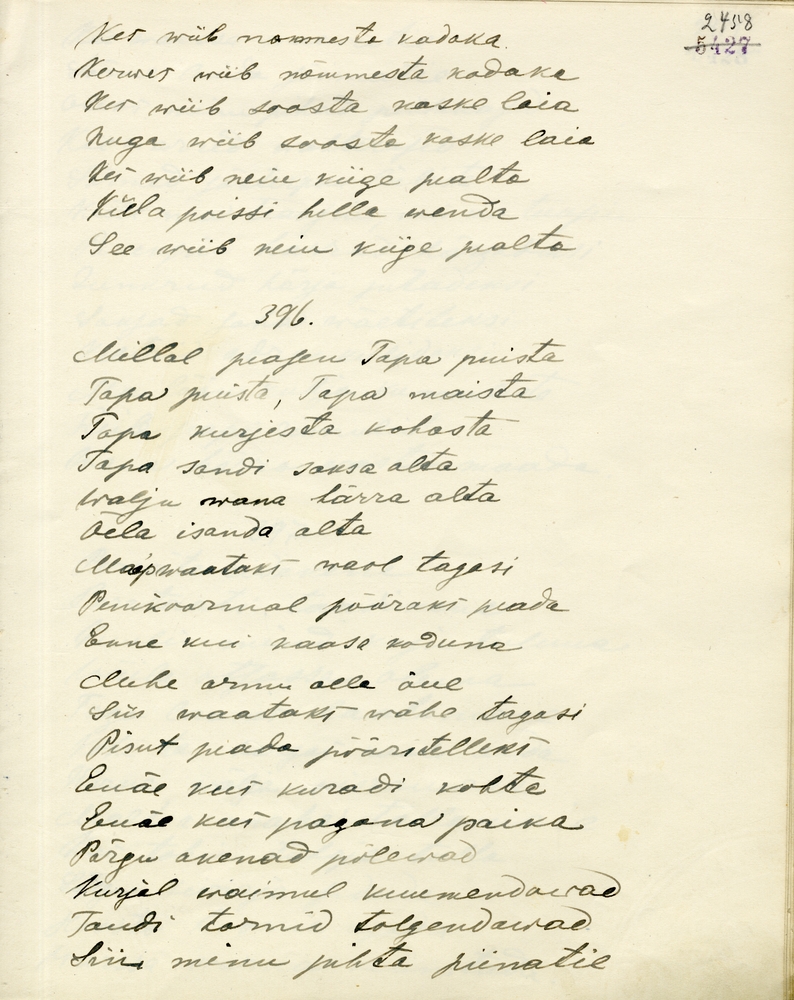 2458
5427
Kes wiib nommesta kadaka.
Kerwes wiib nõmmesta kadaka
Kes wiib soosta kaske laia
Nuga wiib soosta kaske laia
Kes wiib neiu kiige pealta
Külla poissi hella wenda
See wiib neiu kiige pealta
396.
Millal peasen Tapa puista
Tapa puista, Tapa maista
Tapa kurjesta kohasta
Tapa sandi saksa alta
Walju wana härra alta
Õela isanda alta
waataks waol tagasi
Penikoormal pööraks peada
Enne kui kaasa koduna
Muhe armu alle õue
Siis waataks wähe tagasi
Pisut peada pööritelleks
Enäe kus kuradi kohta
Enäe kus pagana paika
Põrgu akenad põlewad
Kurjal waimul kuumendawad
Tondi tornid tolgendawad
Siin minu pihta piinatie